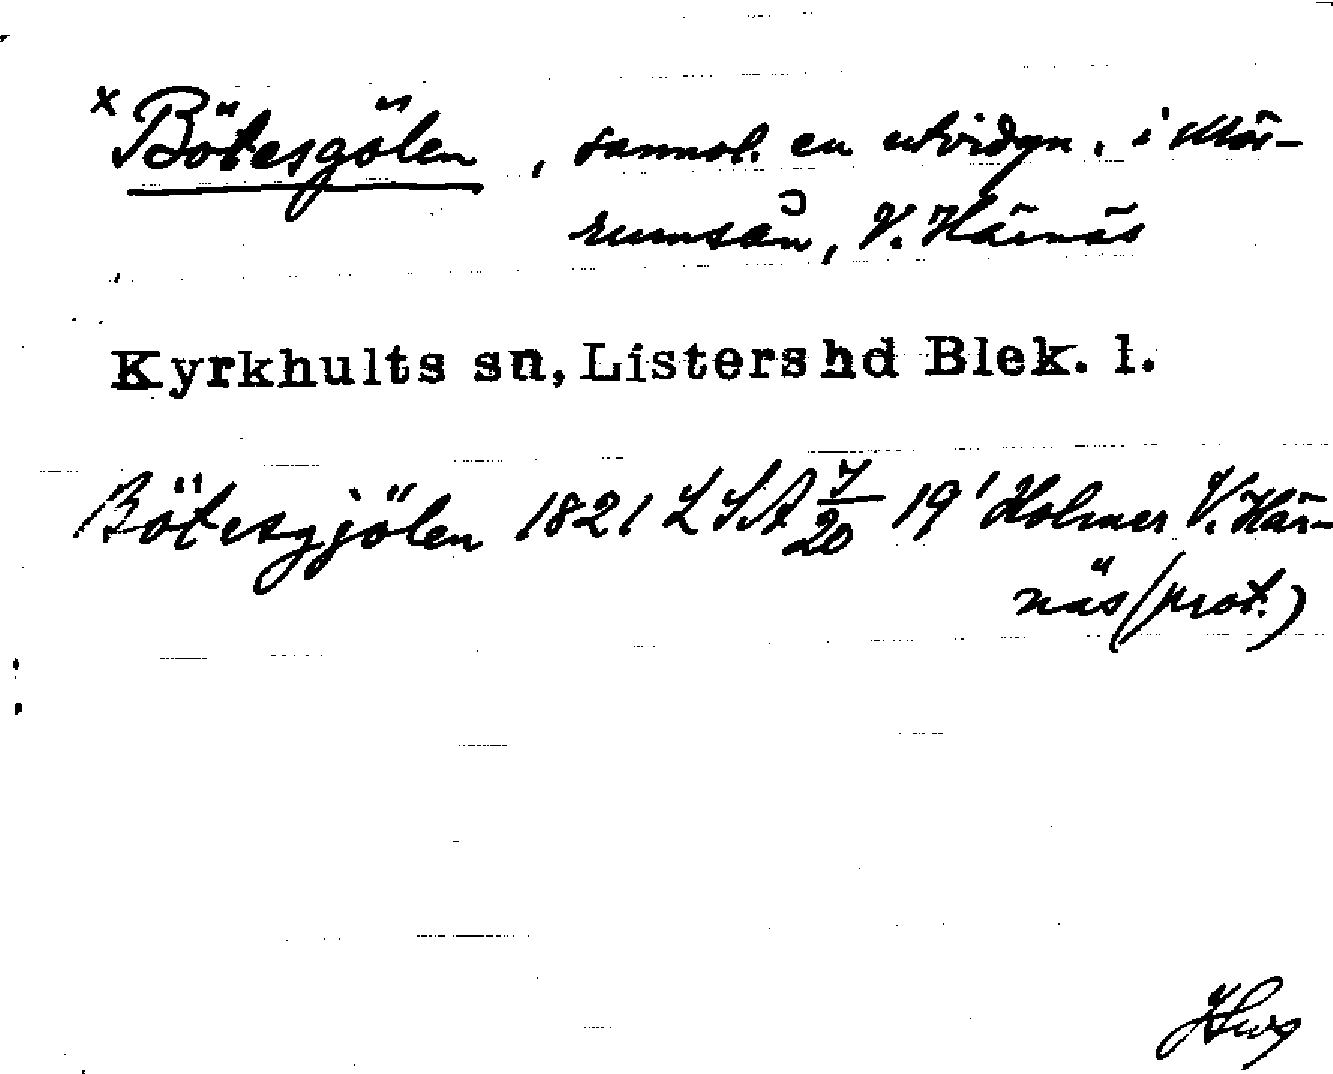 x Bötesgölen, sannol. en utvidgn. i Mör-
rumsån, V. Härnäs
Kyrkhults sn, Listers hd Blek. l.
Bötesgjölen 1821 LSA 7/20 19' Holmer V. Här-
näs (prot.)